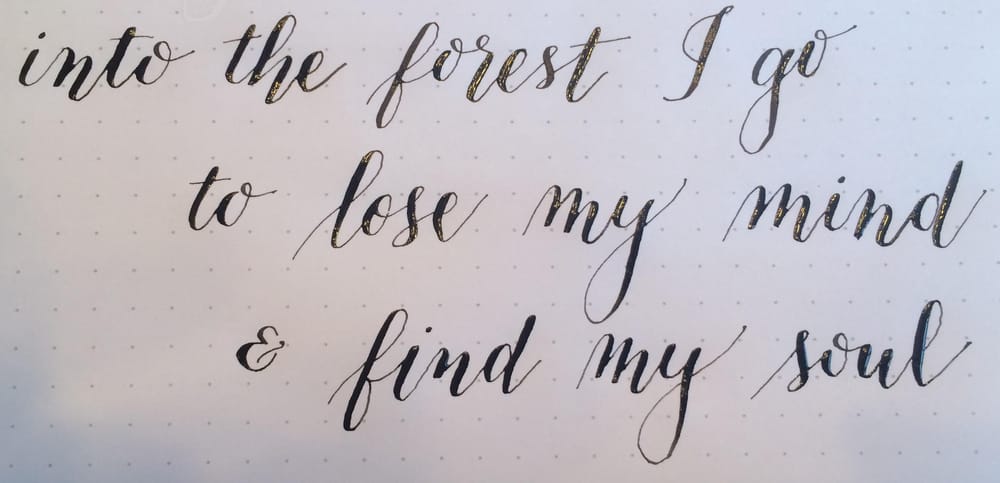 into the forest I go
to lose my mind
& find my soul